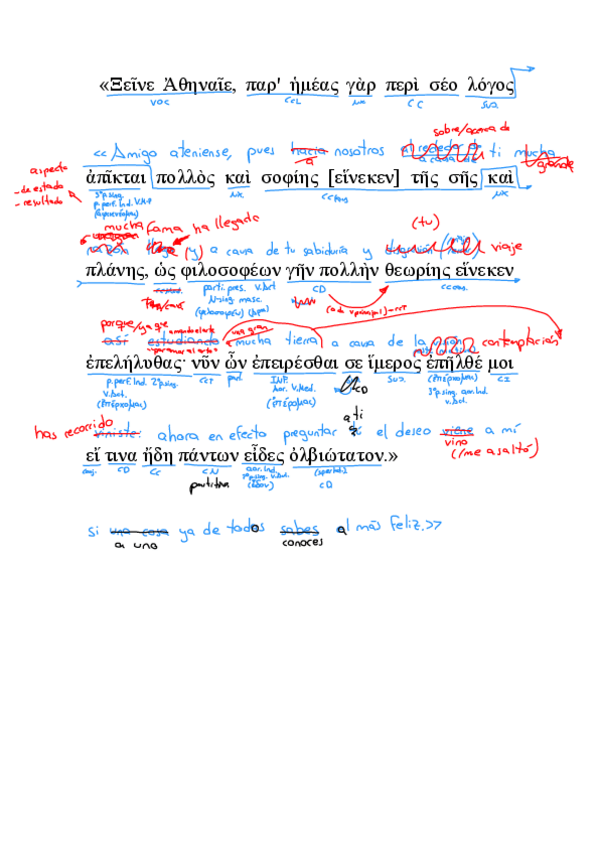 «Ξεῖνε Ἀθηναῖε, παρ' ἡμέας γὰρ περὶ σέο λόγος
voc CCL Nx CC Suj.
sobre/acerca de
<< Amigo ateniense, pues hacia nosotros alrededor de ti mucha
a grande
aspecto
- de estado
- resultado
ἀπῖκται πολλὸς καὶ σοφίης [εἵνεκεν] τῆς σῆς καὶ
3ªp.sing. Nx CCcaus Nx
p. perf. Ind. V.M-P
mucha fama ha llegado (tu)
(y) a causa de tu sabiduría y viaje
πλάνης, ὡς φιλοσοφέων γῆν πολλὴν θεωρίης εἵνεκεν
parti. pres. V.Act CD CCcaus.
N. sing. masc.
porque/ya que
así estudiando mucha tierra a causa de la contemplación
ἐπελήλυθας· νῦν ὦν ἐπειρέσθαι σε ἵμερος ἐπῆλθέ μοι
p. perf. Ind. 2ªp.sing. CCT INF. CD Suj. (ἐπέρχομαι) CI
V.Act. Aor. V.Med. 3ªp.sing. aor. Ind.
(ἐπέρχομαι) V.Act.
a ti
has recorrido viniste: ahora en efecto preguntar el deseo viene a mí
vino
(/me asaltó)
εἴ τινα ἤδη πάντων εἶδες ὀλβιώτατον.»
CD CC CN aor. Ind. (superlat.)
partitivo 2ªp.sing. V.Act. CD
si una cosa ya de todos sabes al más feliz.>>
a uno conoces